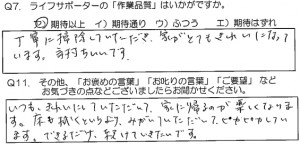 Q7. ライフサポーターの「作業品質」はいかがですか。
ア)期待以上 イ)期待通り ウ)ふつう エ)期待はずれ
丁寧に掃除していただき、家がとてもきれいになって
います。気持ちいいです。
Q11. その他、「お褒めの言葉」「お叱りの言葉」「ご要望」など
お気づきの点などございましたらお聞かせください。
いつも、きれいにしていただいて、家に帰るのが楽しくなりま
す。床も拭くというより、みがいていただいて、ピカピカしてい
ます。できるだけ、続けていきたいです。